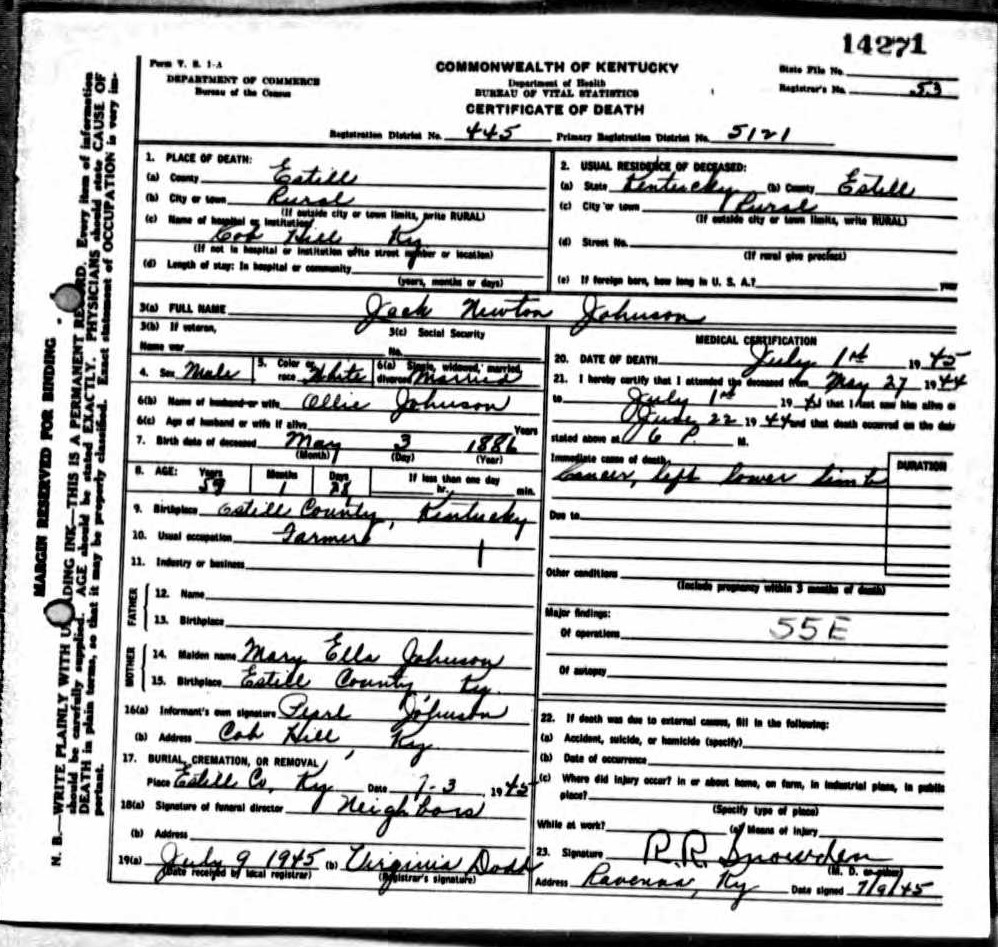 14271
Form V. S. 1-A
DEPARTMENT OF COMMERCE
Bureau of the Census
COMMONWEALTH OF KENTUCKY
Department of Health
BUREAU OF VITAL STATISTICS
CERTIFICATE OF DEATH
State File No.
Registrar's No. 53
Registration District No. 445 Primary Registration District No. 5121
MARGIN RESERVED FOR BINDING
N. B.—WRITE PLAINLY WITH UNFADING INK—THIS IS A PERMANENT RECORD. Every item of information
should be carefully supplied. AGE should be stated EXACTLY. PHYSICIANS should state CAUSE OF
DEATH in plain terms, so that it may be properly classified. Exact statement of OCCUPATION is very im-
portant.
1. PLACE OF DEATH:
(a) County Estill
(b) City or town Rural
(If outside city or town limits, write RURAL)
(c) Name of hospital or institution
Cob Hill Ky
(If not in hospital or institution write street number or location)
(d) Length of stay: In hospital or community
(years, months or days)
2. USUAL RESIDENCE OF DECEASED:
(a) State Kentucky (b) County Estill
(c) City or town Rural
(If outside city or town limits, write RURAL)
(d) Street No.
(If rural give precinct)
(e) If foreign born, how long in U. S. A.? year
3(a) FULL NAME Jack Newton Johnson
3(b) If veteran,
Name war
3(c) Social Security
No.
4. Sex Male 5. Color or race White 6(a) Single, widowed, married, divorced Married
6(b) Name of husband or wife Ollie Johnson
6(c) Age of husband or wife if alive Years
7. Birth date of deceased May 3 1886
(Month) (Day) (Year)
8. AGE: Years 59 Months 1 Days 28 If less than one day hr. min.
9. Birthplace Estill County, Kentucky
10. Usual occupation Farmer
11. Industry or business
FATHER
12. Name
13. Birthplace
MOTHER
14. Maiden name Mary Ella Johnson
15. Birthplace Estill County, Ky.
16(a) Informant's own signature Pearl Johnson
(b) Address Cob Hill, Ky
17. BURIAL, CREMATION, OR REMOVAL
Place Estill Co, Ky Date 7-3, 1945
18(a) Signature of funeral director Neighbors
(b) Address
19(a) July 9 1945 (b) Virginia Dodd
(Date received by local registrar) (Registrar's signature)
MEDICAL CERTIFICATION
20. DATE OF DEATH July 1st 1945
21. I hereby certify that I attended the deceased from May 27 1944
to July 1st 19 that I last saw him alive on
June 22 1944 and that death occurred on the date
stated above at 6 P. M.
Immediate cause of death DURATION
Cancer, left lower limb
Due to
Other conditions
(Include pregnancy within 3 months of death)
Major findings:
Of operations 55E
Of autopsy
22. If death was due to external causes, fill in the following:
(a) Accident, suicide, or homicide (specify)
(b) Date of occurrence
(c) Where did injury occur? in or about home, on farm, in industrial place, in public
place?
(Specify type of place)
While at work? (e) Means of injury
23. Signature R.R. Snowden
(M. D. or other)
Address Ravenna, Ky Date signed 7/9/45